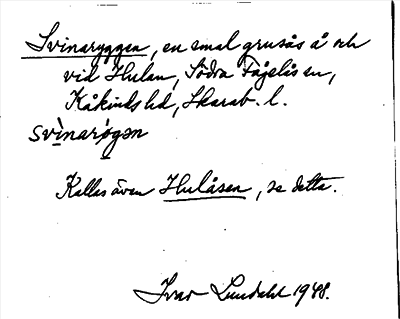 Svinaryggen, en smal grusås å och
vid Hulan, Södra Fågelås sn,
Kåkinds hd, Skarab. l.
svìnarỳgən
Kallas även Hulåsen, se detta.
Ivar Lundahl 1948.